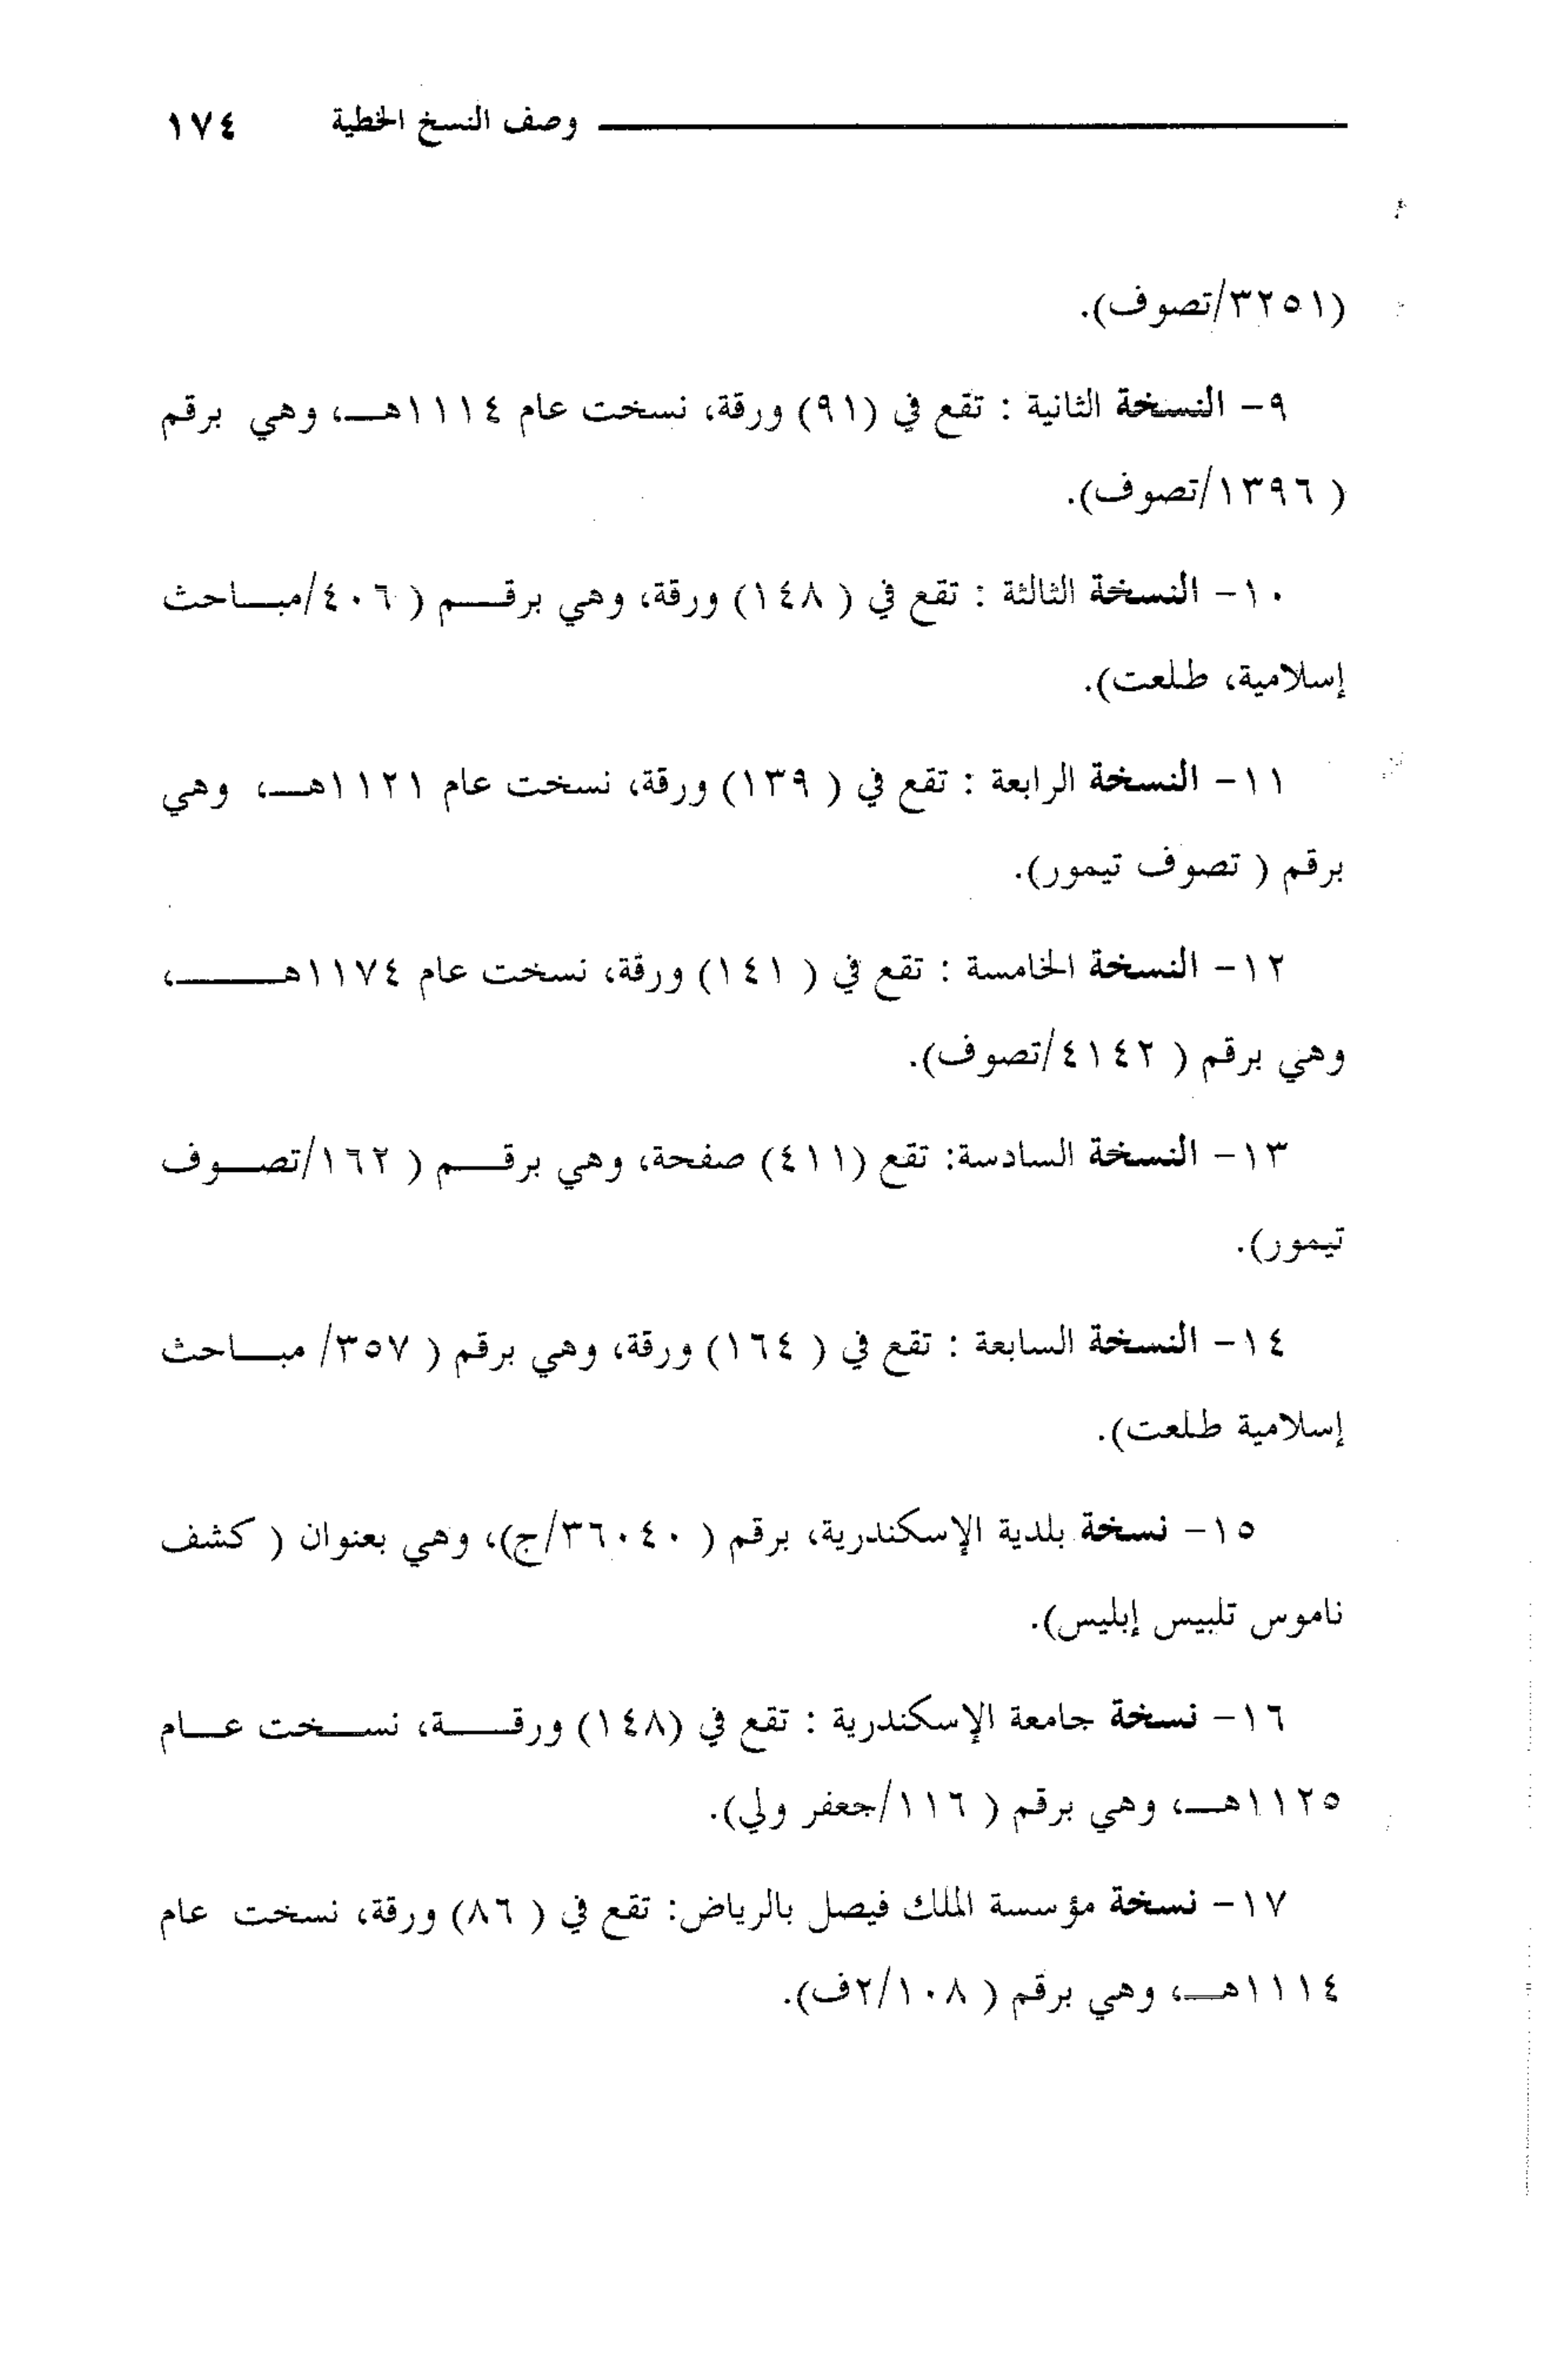 وصف النسخ الخطية ١٧٤
(٣٢٥١/تصوف).
٩- النسخة الثانية : تقع في (٩١) ورقة، نسخت عام ١١١٤هـ، وهي برقم
( ١٣٩٦/تصوف).
١٠- النسخة الثالثة : تقع في ( ١٤٨) ورقة، وهي برقم ( ٤٠٦/مباحث
إسلامية، طلعت).
١١- النسخة الرابعة : تقع في ( ١٣٩) ورقة، نسخت عام ١١٢١هـ، وهي
برقم ( تصوف تيمور).
١٢- النسخة الخامسة : تقع في ( ١٤١) ورقة، نسخت عام ١١٧٤هـ،
وهي برقم ( ٤١٤٢/تصوف).
١٣- النسخة السادسة: تقع (٤١١) صفحة، وهي برقم ( ١٦٢/تصوف
تيمور).
١٤- النسخة السابعة : تقع في ( ١٦٤) ورقة، وهي برقم ( ٣٥٧/ مباحث
إسلامية طلعت).
١٥- نسخة بلدية الإسكندرية، برقم ( ٣٦٠٤٠/ج)، وهي بعنوان ( كشف
ناموس تلبيس إبليس).
١٦- نسخة جامعة الإسكندرية : تقع في (١٤٨) ورقة، نسخت عام
١١٢٥هـ، وهي برقم ( ١١٦/جعفر ولي).
١٧- نسخة مؤسسة الملك فيصل بالرياض: تقع في ( ٨٦) ورقة، نسخت عام
١١١٤هـ، وهي برقم ( ٢/١٠٨ف).